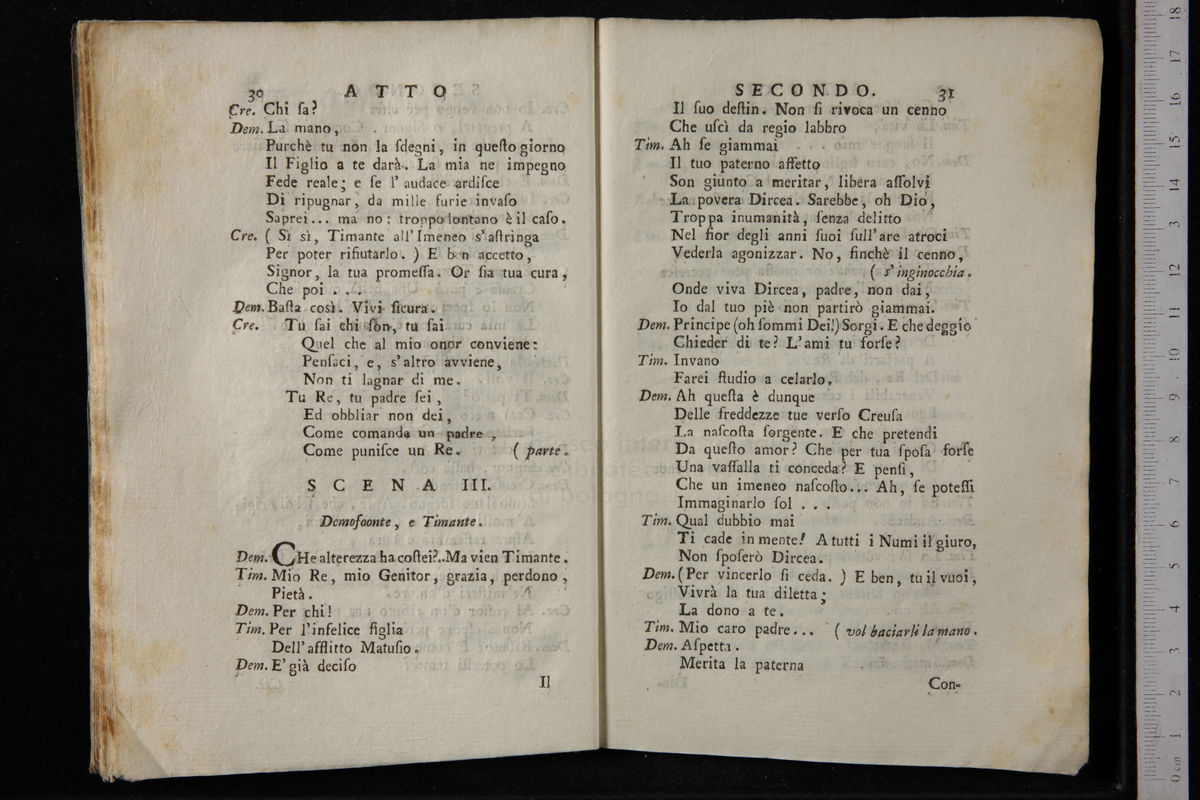 30 ATTO
Cre. Chi ſa?
Dem. La mano,
Purchè tu non la ſdegni, in queſto giorno
Il Figlio a te darà. La mia ne impegno
Fede reale; e ſe l'audace ardiſce
Di ripugnar, da mille furie invaſo
Saprei... ma no: troppo lontano è il caſo.
Cre. ( Sì sì, Timante all'Imeneo s'aſtringa
Per poter rifiutarlo. ) E ben accetto,
Signor, la tua promeſſa. Or ſia tua cura,
Che poi . . .
Dem. Baſta così. Vivi ſicura.
Cre. Tu ſai chi ſon, tu ſai
Quel che al mio onor conviene:
Penſaci, e, s'altro avviene,
Non ti lagnar di me.
Tu Re, tu padre ſei,
Ed obbliar non dei,
Come comanda un padre,
Come puniſce un Re. ( parte.
SCENA III.
Demofoonte, e Timante.
Dem. CHe alterezza ha coſtei?..Ma vien Timante.
Tim. Mio Re, mio Genitor, grazia, perdono,
Pietà.
Dem. Per chi!
Tim. Per l'infelice figlia
Dell'afflitto Matuſio.
Dem. E' già deciſo
Il
SECONDO. 31
Il ſuo deſtin. Non ſi rivoca un cenno
Che uſcì da regio labbro
Tim. Ah ſe giammai
Il tuo paterno affetto
Son giunto a meritar, libera aſſolvi
La povera Dircea. Sarebbe, oh Dio,
Troppa inumanità, ſenza delitto
Nel fior degli anni ſuoi ſull'are atroci
Vederla agonizzar. No, finchè il cenno,
( s'inginocchia.
Onde viva Dircea, padre, non dai,
Io dal tuo piè non partirò giammai.
Dem. Principe (oh ſommi Dei!) Sorgi. E che deggio
Chieder di te? L'ami tu forſe?
Tim. Invano
Farei ſtudio a celarlo.
Dem. Ah queſta è dunque
Delle freddezze tue verſo Creuſa
La naſcoſta ſorgente. E che pretendi
Da queſto amor? Che per tua ſpoſa forſe
Una vaſſalla ti conceda? E penſi,
Che un imeneo naſcoſto... Ah, ſe poteſſi
Immaginarlo ſol . . .
Tim. Qual dubbio mai
Ti cade in mente! A tutti i Numi il giuro,
Non ſpoſerò Dircea.
Dem. (Per vincerlo ſi ceda. ) E ben, tu il vuoi,
Vivrà la tua diletta;
La dono a te.
Tim. Mio caro padre... ( vol baciarli la mano.
Dem. Aſpetta.
Merita la paterna
Con-